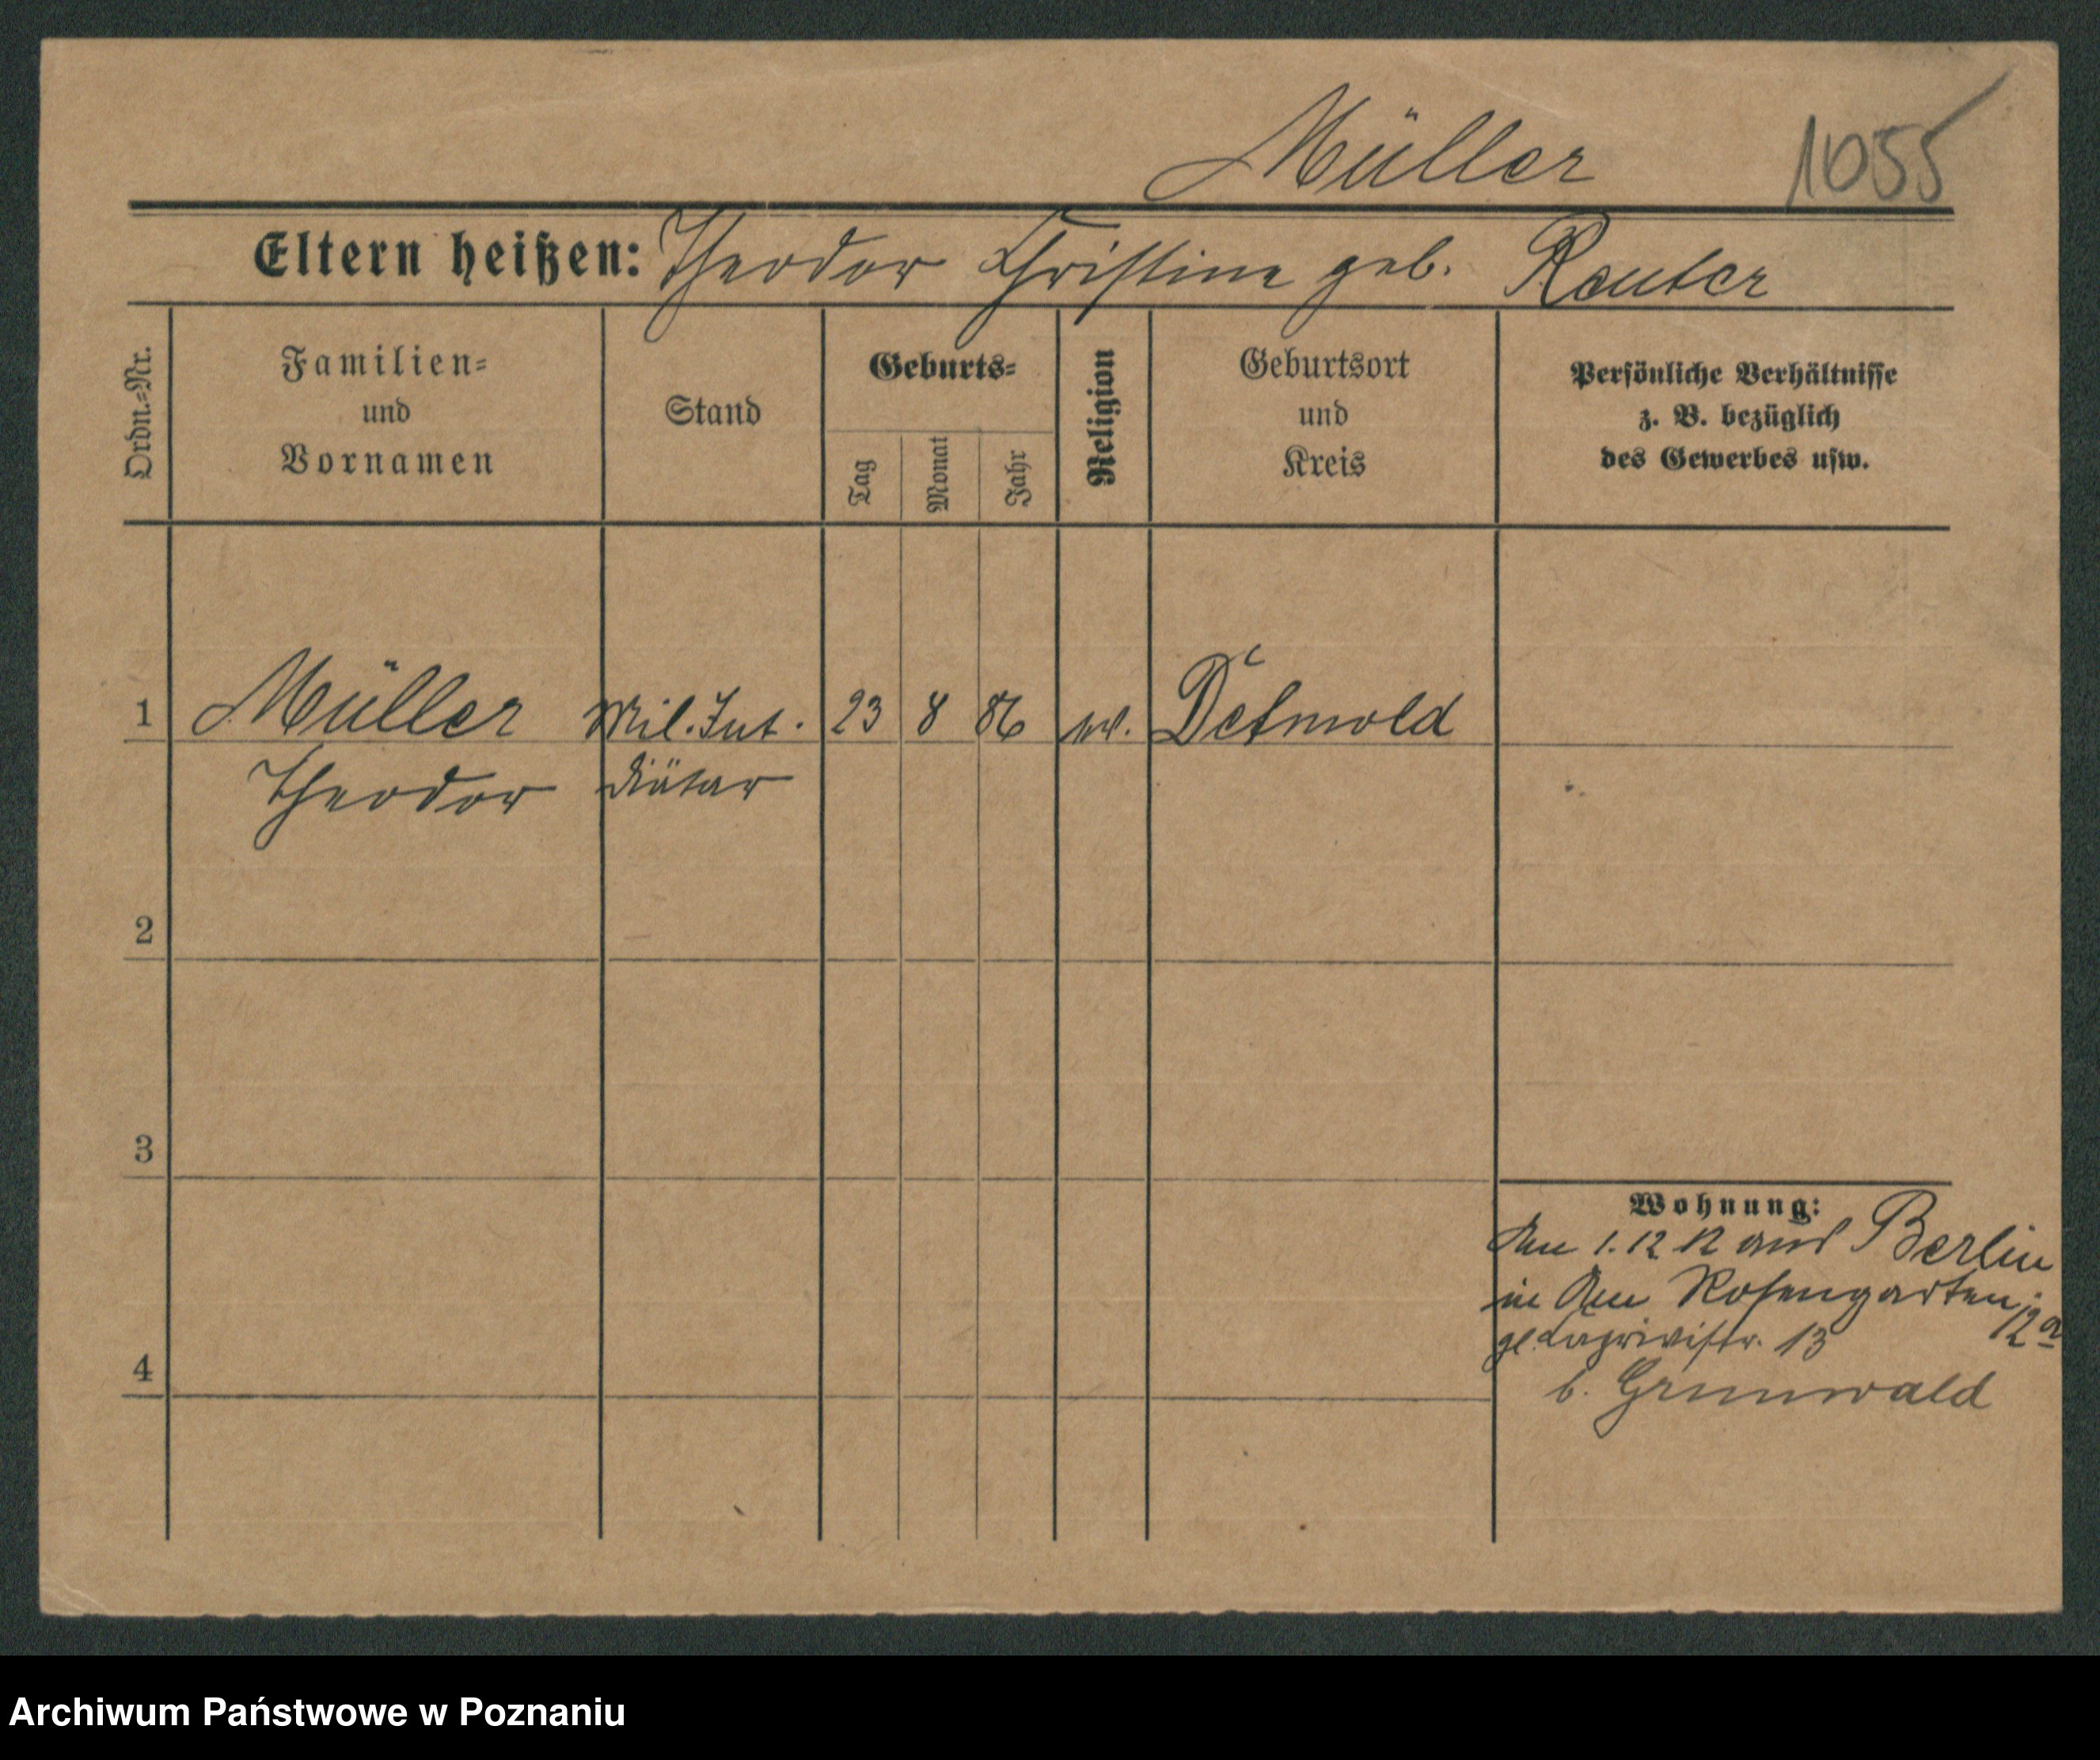 Müller 1055
Eltern heißen: Theodor Christine geb. Reuter
Ordn.-Nr.
Familien-
und
Vornamen
Stand
Geburts-
Tag
Monat
Jahr
Religion
Geburtsort
und
Kreis
Persönliche Verhältnisse
z. B. bezüglich
des Gewerbes usw.
1 Müller Mil. Int. 23 8 86 Detmold
Theodor Diätar
2
3
4
Wohnung:
Am 1. 12 12 aus Berlin
in Am Rosengarten 12a
13
b. Grunwald
Archiwum Państwowe w Poznaniu